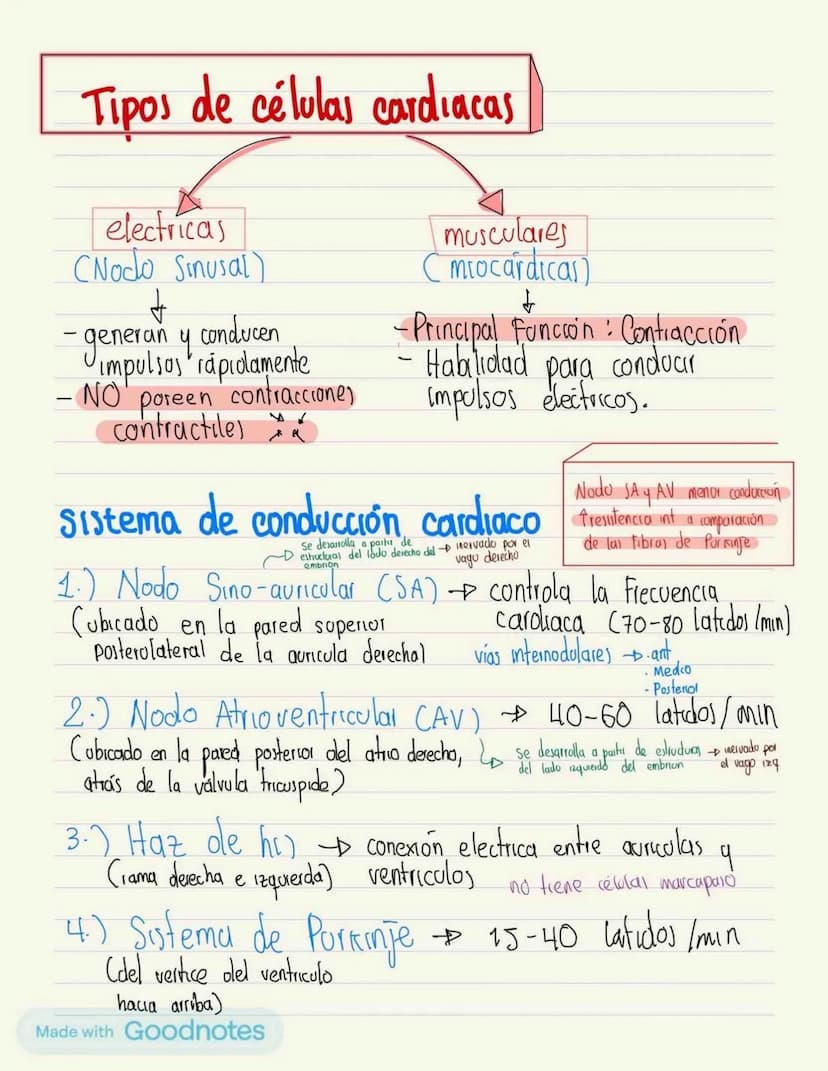 Tipos de células cardiacas
electricas
(Nodo Sinusal)
- generan y conducen
impulsos rápidamente
- NO poseen contracciones
contractiles
musculares
(miocárdicas)
- Principal Función: Contracción
- Habilidad para conducir
impulsos electricos.
Nodo SA y AV menor conducción
↑resistencia int a comparación
de las Fibras de Purkinje
sistema de conducción cardiaco
Se desarrolla a partir de
estructuras del lado derecho del
embrión
→ inervado por el
vago derecho
1.) Nodo Sino-auricular (SA) → controla la Frecuencia
cardiaca (70-80 latidos/min)
(ubicado en la pared superior
posterolateral de la auricula derecha)
vías internodulares → . ant
. Medio
- Posterior
2.) Nodo Atrioventricular (AV) → 40-60 latidos/min
(ubicado en la pared posterior del atrio derecho,
atrás de la válvula tricuspide)
se desarrolla a partir de estructura
del lado izquierdo del embrion
→ inervado por
el vago izq
3.) Haz de his → conexión electrica entre auriculas y
ventriculos
(rama derecha e izquierda)
no tiene células marcapaso
4.) Sistema de Purkinje → 15-40 latidos/min
(del vertice del ventriculo
hacia arriba)
Made with Goodnotes